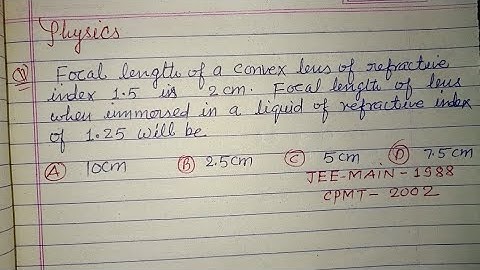 Physics
Q1 Focal length of a convex lens of refractive
index 1.5 is 2cm. Focal length of lens
when immersed in a liquid of refractive index
of 1.25 will be
A 10cm B 2.5cm C 5cm D 7.5cm
JEE-MAIN-1988
CPMT-2002